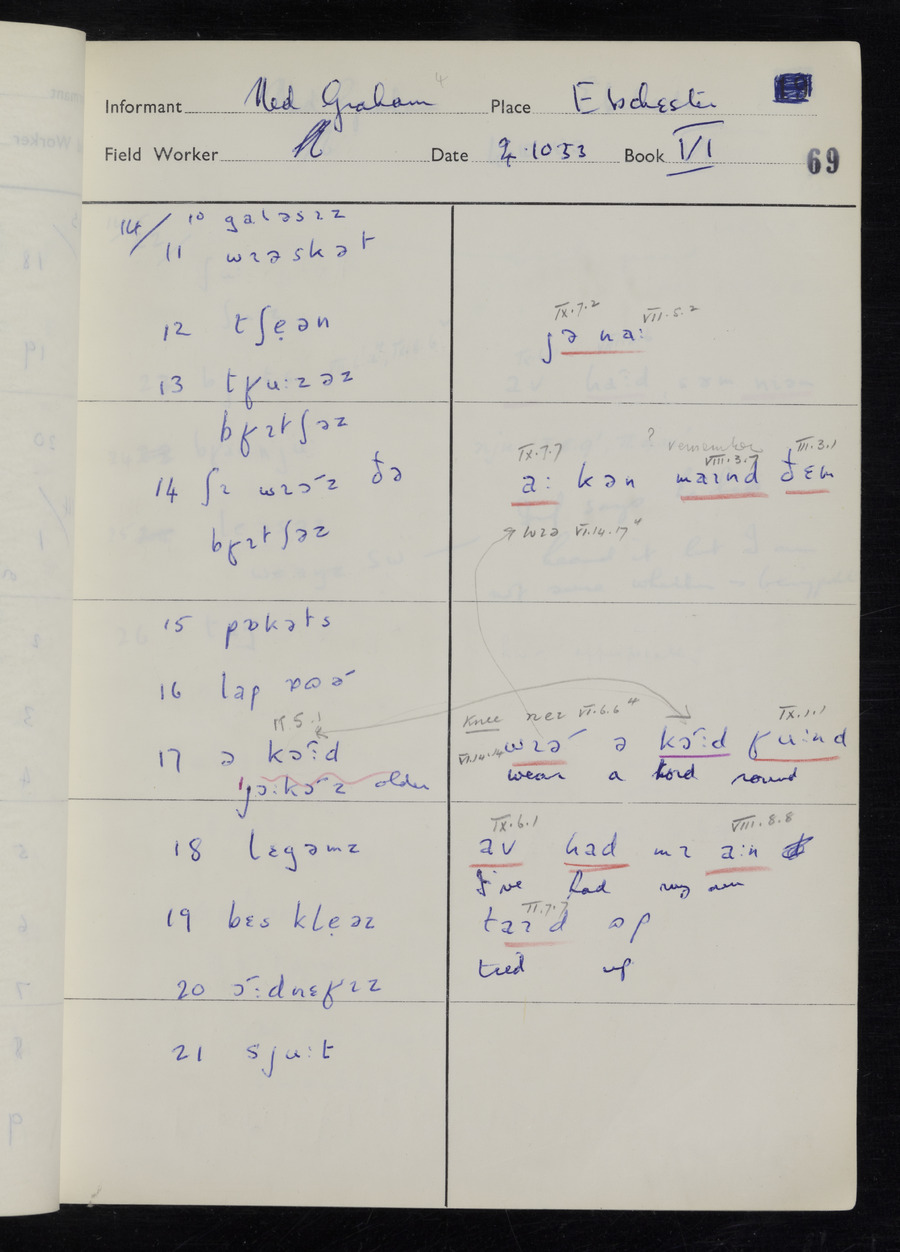 Informant Ned Graham 4 Place Ebchester
Field Worker Date 2.10.53 Book VI 69
14/ 10 galəsɪz
11 wɪəskət
12 tʃẹən
IX.7.2 VII.5.2
jə naː
13 tʁuːzəz
bʁɪtʃəz
IX.7.7 ? remember VIII.3.7 III.3.1
14 ʃɪ wɪɔ̄z ðə
aː kən maɪnd ðɛm
bʁɪtʃəz
wɪə VI.14.17"
15 pɒkəts
16 lap
II.5.1
Knee neɪ VI.6.6" IX.1.1
17 ə kɔ̄ːd
VI.14.14 wɪɔ̄ ə kɔ̄ːd ʁuːnd
jɔːkɔ̄z older
wear a cord round
IX.6.1 VIII.8.8
18 lɛgəmz
av had mɪ aːn
I've had my own
II.7.7
19 bɛs klẹəz
taɪd əp
tied up
20 ɔ̄ːdnɛʁɪz
21 sjuːt